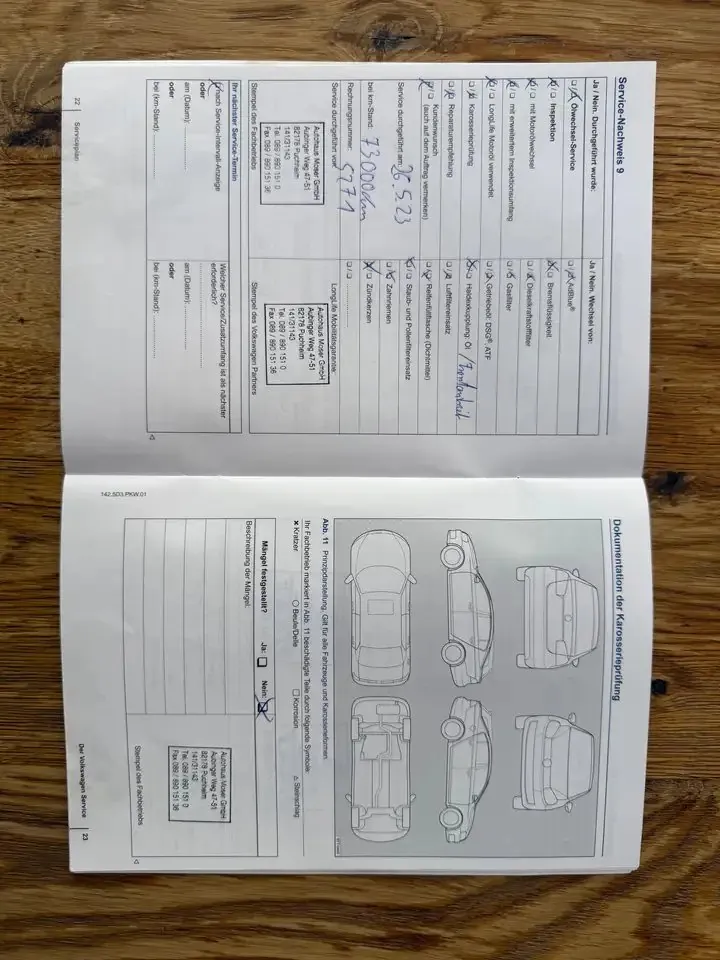 Service-Nachweis 9
Ja / Nein. Durchgeführt wurde:
Ölwechsel-Service
Inspektion
mit Motorölwechsel
mit erweitertem Inspektionsumfang
LongLife Motoröl verwendet
Karosserieprüfung
Reparaturempfehlung
Kundenwunsch
(auch auf dem Auftrag vermerken)
Service durchgeführt am: 26.5.23
bei km-Stand: 73000km
Rechnungsnummer:
Service durchgeführt von:
Autohaus Moser GmbH
Aubinger Weg 47-51
82178 Puchheim
141/31143
Tel. 089 / 890 151 0
Fax 089 / 890 151 36
Stempel des Fachbetriebs
Ihr nächster Service-Termin
nach Service-Intervall-Anzeige
oder
am (Datum):
oder
bei (km-Stand):
Ja / Nein. Wechsel von:
AdBlue®
Bremsflüssigkeit
Dieselkraftstofffilter
Gasfilter
Getriebeöl: DSG®, ATF
Haldexkupplung: Öl
Luftfiltereinsatz
Reifenfülltasche (Dichtmittel)
Staub- und Pollenfiltereinsatz
Zahnriemen
Zündkerzen
LongLife Mobilitätsgarantie:
Autohaus Moser GmbH
Aubinger Weg 47-51
82178 Puchheim
141/31143
Tel. 089 / 890 151 0
Fax 089 / 890 151 36
Stempel des Volkswagen Partners
Welcher Service/Zusatzumfang ist als nächster
erforderlich?
am (Datum):
oder
bei (km-Stand):
22 Serviceplan
Dokumentation der Karosserieprüfung
Abb. 11 Prinzipdarstellung. Gilt für alle Fahrzeuge und Karosserieformen.
Ihr Fachbetrieb markiert in Abb. 11 beschädigte Teile durch folgende Symbole:
× Kratzer ○ Beule/Delle □ Korrosion △ Steinschlag
Mängel festgestellt? Ja: Nein:
Beschreibung der Mängel:
Autohaus Moser GmbH
Aubinger Weg 47-51
82178 Puchheim
141/31143
Tel. 089 / 890 151 0
Fax 089 / 890 151 36
Stempel des Fachbetriebs
142.5D3.PKW.01
Der Volkswagen Service 23